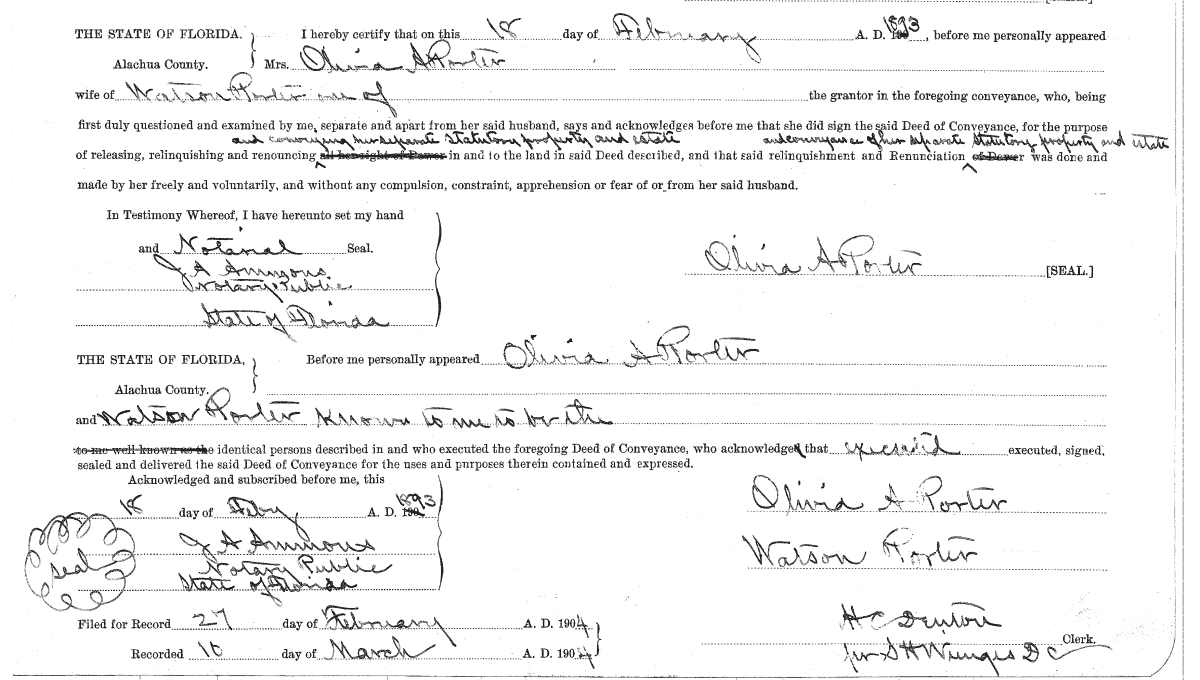 [SEAL.]
THE STATE OF FLORIDA. } I hereby certify that on this 18 day of February A. D. 1893, before me personally appeared
Alachua County. Mrs. Olivia A Porter
wife of Watson Porter one of the grantor in the foregoing conveyance, who, being
first duly questioned and examined by me, separate and apart from her said husband, says and acknowledges before me that she did sign the said Deed of Conveyance, for the purpose
and conveying her separate statutory property and estate and conveyance of her separate Statutory property and estate
of releasing, relinquishing and renouncing all her right of Dower in and to the land in said Deed described, and that said relinquishment and Renunciation of Dower was done and
made by her freely and voluntarily, and without any compulsion, constraint, apprehension or fear of or from her said husband.
In Testimony Whereof, I have hereunto set my hand
and Notarial Seal.
Olivia A Porter [SEAL.]
J A Ammons.
Notary Public
State of Florida
THE STATE OF FLORIDA, } Before me personally appeared Olivia A Porter
Alachua County.
and Watson Porter Known to me to be the
to me well known as the identical persons described in and who executed the foregoing Deed of Conveyance, who acknowledged that executed, signed,
sealed and delivered the said Deed of Conveyance for the uses and purposes therein contained and expressed.
Acknowledged and subscribed before me, this
18 day of Feby A. D. 1893
Olivia A Porter
J A Ammons
Watson Porter
seal
Notary Public
State of Florida
Filed for Record 27 day of February A. D. 1904
H C Denton Clerk,
Recorded 10 day of March A. D. 1904
per S H Wienges D C